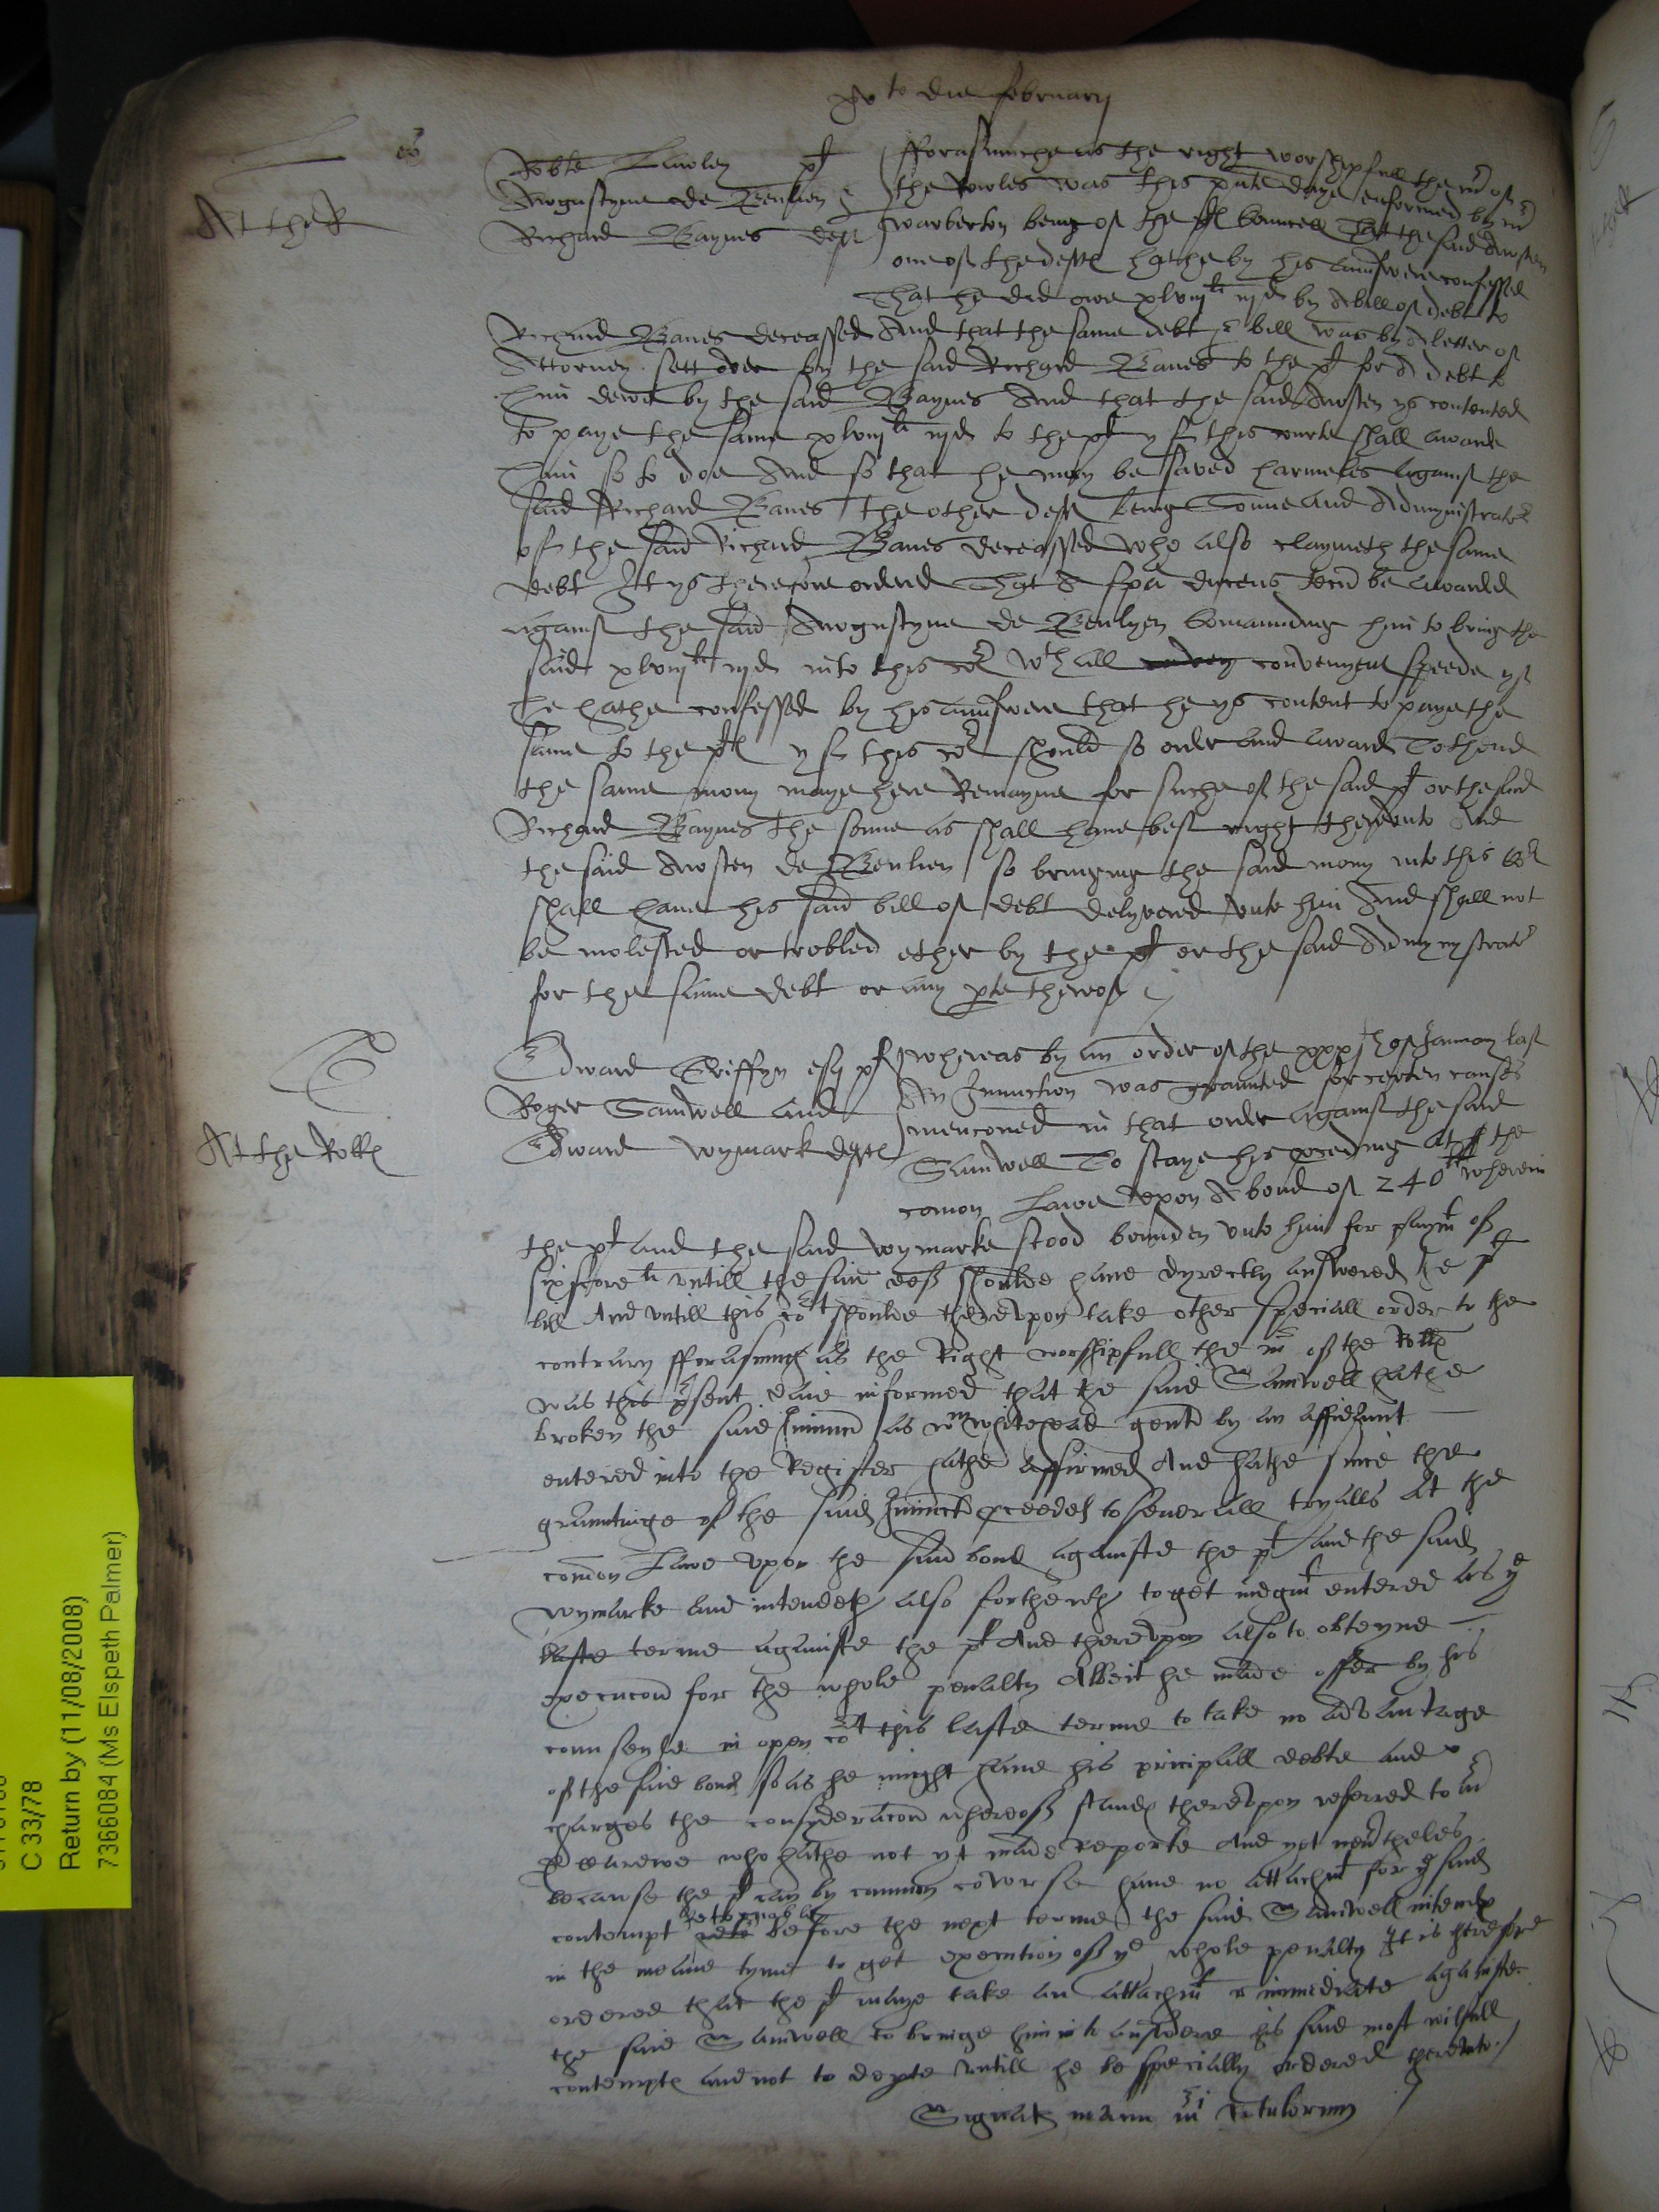 die february
L
At the R
Robte Lawley plt
Augustyne de Beulien
Richard Baynes deft
fforasmuche as the right worshipfull the mr of
the Rowles was this pnte daye enformed by mr
warberton being of the pls councell That the said Austen
one of the deftes hathe by his aunswere confessed
That he did owe xlviijli by A bill of debt to
Richard Banes deceassed And that the same debt & bill was by A letter of
Attorney sett over by the said Richard Banes to the plt for A debt to
him dewe by the said Baynes And that the said Austen ys contented
to paye the same xlviijli to the plt yf this courte shall awarde
him so to doe And so that he may be saved harmeles against the
said Richard Banes the other deft being Sonne and Administrator
of the said Richard Banes deceassed who also claymeth the same
debt It ys therefore ordered That A spa ducens tecu be awarded
against the said Augustyne de Beulyen Comaunding him to bring the
said xlviijli into this cort wth all convenyent speede yf
he hathe confessed by his aunswere that he ys content to paye the
same to the pl yf this cort should so order and award To thend
the same mony maye here Remayne for suche of the said plt or the said
Richard Baynes the sonne as shall have best right therevnto And
the said Austen de Beulien so bringing the said mony into this Cort
shall have his said bill of debt delyvered vnto him And shall not
be molested or trobled ether by the plt or the said Admynystrator
for the same debt or any pte therof
At the Rolls
Edward Griffyn esq plt
Roger Samwell and
Edward wymark deftes
whereas by an order of the xxxjth of January last
An Iniunction was graunted for certen causes
mencioned in that order against the said
Samwell To staye his proceding at the
comon Lawe vpon A bond of 240li wherein
the plt and the said wymarke stood bounden vnto him for paymt of
sixscore li vntill the said deft shoulde have dyrectly answered the plt
bill And vntill this cort shoulde therevpon take other speciall order to the
contrary fforasmuch as the Right worshipfull the mr of the Rolls
was this psent daie informed that the said Samwell hathe
broken the said Iniunct as wm whitehead gent by an affidavit
entered into the Register hathe affirmed And hathe since the
grauntinge of the said Iniunct proceeded to severall tryalls at the
comon Lawe vpon the said bond againste the plt and the said
wymarke and intendeth also forthewth to get iudgmt entered as ye
laste terme againste the plt And therevpon also to obteyne
execucon for the whole penalty Albeit he made offer by his
counsell in open cort this laste terme to take no advantage
of the said bond so as he might have his principall debte and
charges the consyderacon whereof standes therevpon referred to mr
D Carewe who hathe not yt made Reporte And yet nevertheles
because the plt can by common course have no attachmt for ye said
contempt Retornable before the next terme the said Samwell intendes
in the meane tyme to get execution of ye whole penalty It is therefore
ordered that the plt maye take an attachmt immediate againste
the said Samwell to bringe him in to answere his said most wilfull
contempte and not to depte vntill he be specially ordered therevnto
Signat manu mri Rotulorum
C 33/78
Return by (11/08/2008)
7366084 (Ms Elspeth Palmer)